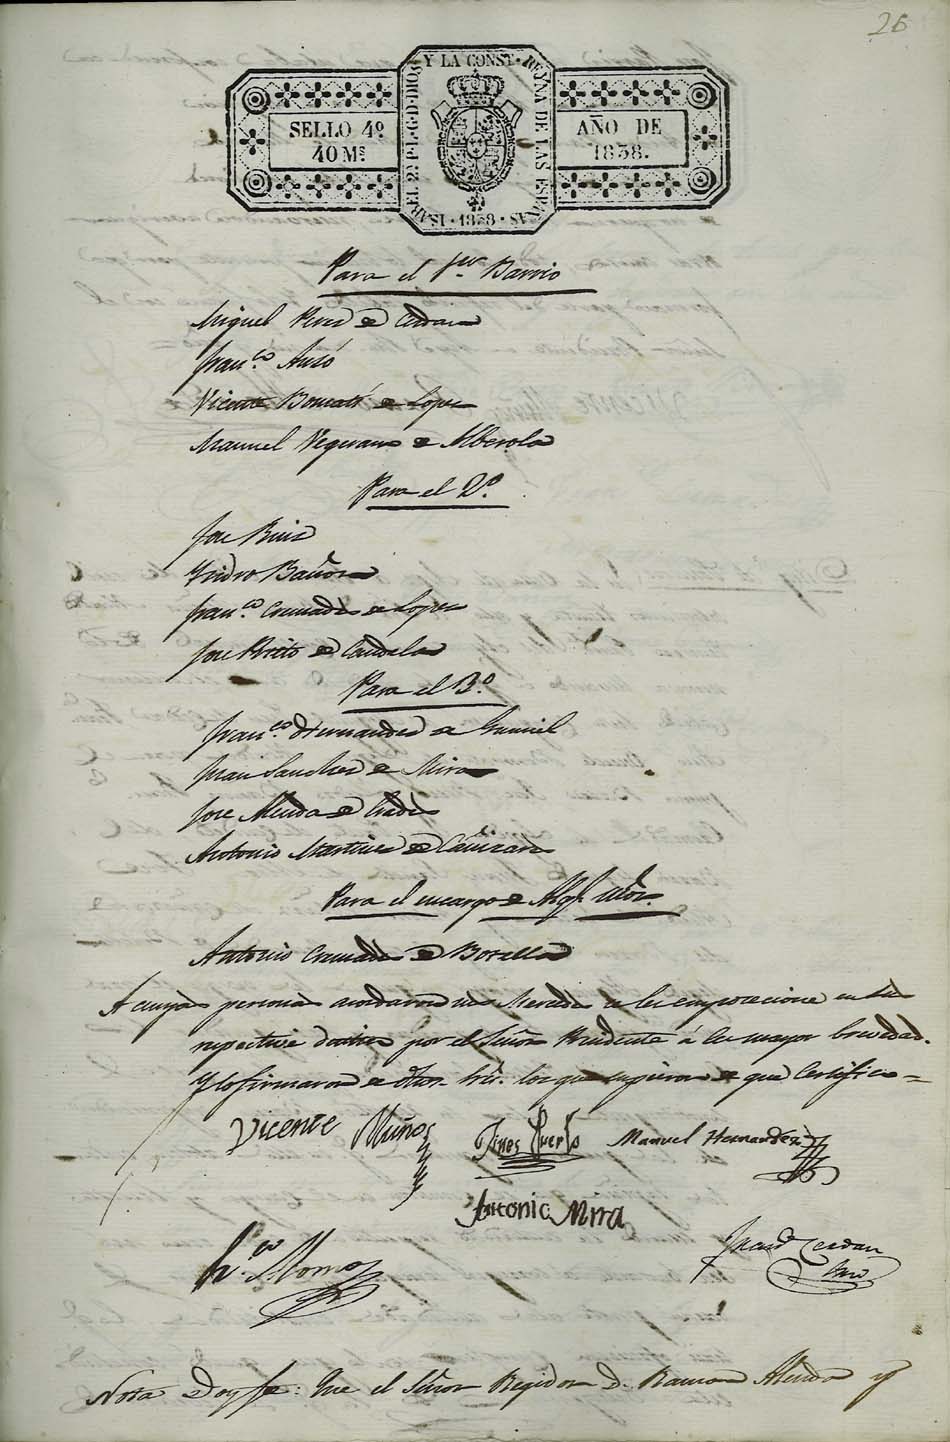 26
ISABEL 2ª P. L. G. D. DIOS Y LA CONST. REYNA DE LAS ESPAÑAS · 1838 ·
SELLO 4º
40 Ms
AÑO DE
1838.
Para el 1er Barrio
Miguel Perez de Cerdan
Franco
Vicente Bomatí de Lopez
Manuel de Alberola
Para el 2º
Jose Ruiz
Ysidro
Franco Cremades de Lopez
Jose Prieto de Candela
Para el 3º
Franco Hernandez de
Juan Sanchez de Mira
Jose Alenda de
Antonio Martinez de Cañizares
Para el encargo de
Antonio Cremades de Botella
A cuyas personas acordaron sus Mercedes se les emposecione en sus
respectivos por el Señor Presidente á la mayor brevedad.
Y lo firmaron de los que supieron de que Certifico =
Vicente Muños
Gines Puerto
Manuel Hernandez
Antonio Mira
Cerdan
Srio
Nota Doy fe: Que el Señor Regidor D. Ramon Alenda y